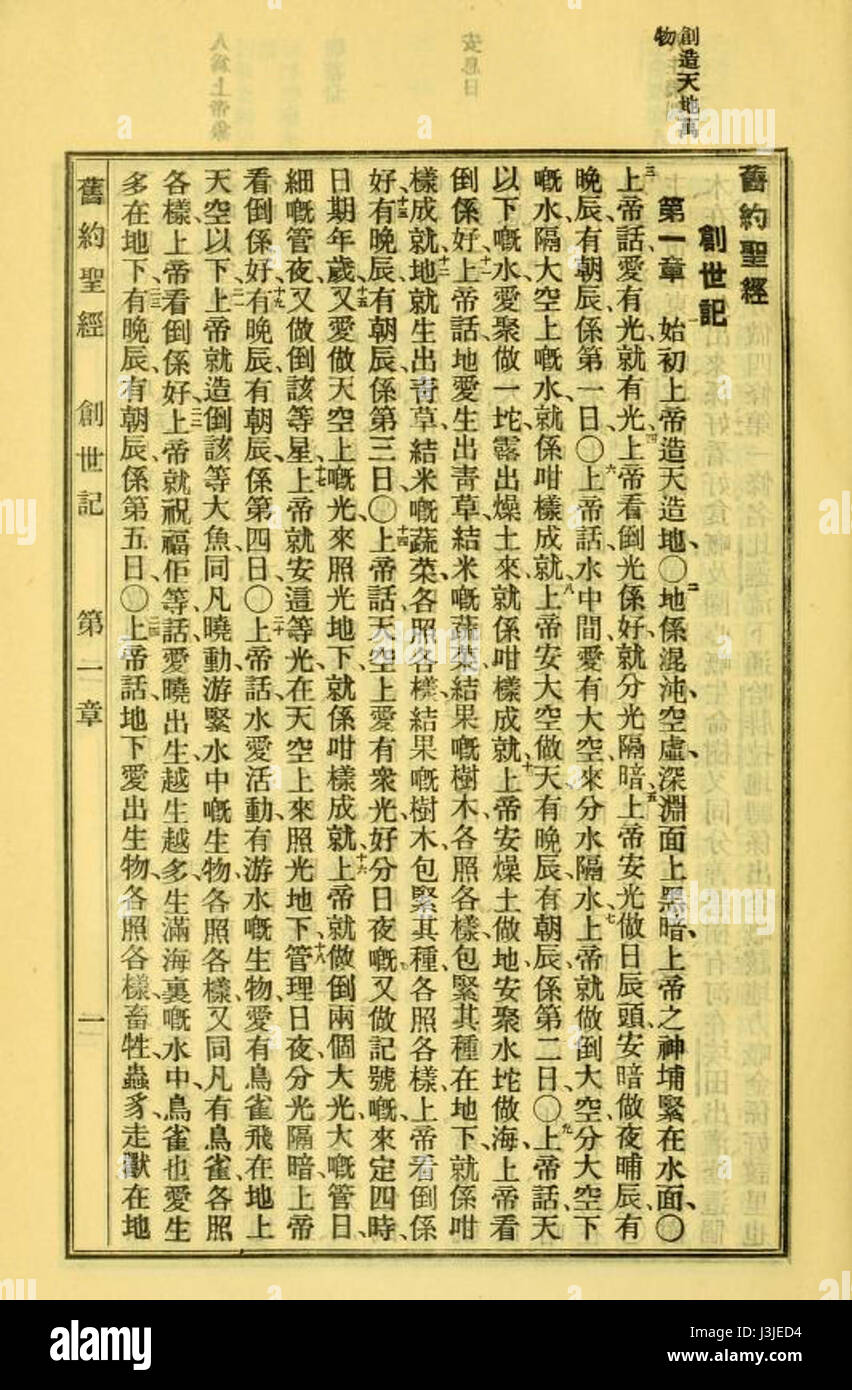 創造天地萬
物
舊約聖經
創世記
第一章 一始初上帝造天造地、〇二地係混沌空虛深淵面上黑暗、上帝之神埔緊在水面、〇
三上帝話愛有光、就有光、四上帝看倒光係好、就分光隔暗、五上帝安光做日辰頭、安暗做夜晡辰、有
晚辰有朝辰、係第一日〇六上帝話水中間愛有大空來分水隔水、七上帝就做倒大空分大空下
嘅水隔大空上嘅水、就係咁樣成就、八上帝安大空做天、有晚辰有朝辰、係第二日、〇九上帝話天
以下嘅水愛聚做一坨露出燥土來、就係咁樣成就、十上帝安燥土做地、安聚水坨做海、上帝看
倒係好、十一上帝話地愛生出青草、結米嘅蔬菜、結果嘅樹木、各照各樣、包緊其種在地下、就係咁
樣成就、十二地就生出青草、結米嘅蔬菜、各照各樣、結果嘅樹木包緊其種、各照各樣、上帝看倒係
好、十三有晚辰、有朝辰、係第三日、〇十四上帝話天空上愛有衆光、好分日夜嘅、又做記號嘅、來定四時、
日期年歲、十五又愛做天空上嘅光、來照光地下、就係咁樣成就、十六上帝就做倒兩個大光、大嘅管日、
細嘅管夜、又做倒該等星、十七上帝就安這等光在天空上來照光地下、十八管理日夜、分光隔暗、上帝
看倒係好、十九有晚辰、有朝辰、係第四日〇二十上帝話水愛活動有游水嘅生物、愛有鳥雀飛在地上
天空以下、二一上帝就造倒該等大魚、同凡曉動游緊水中嘅生物、各照各樣、又同凡有鳥雀、各照
各樣、上帝看倒係好、二二上帝就祝福佢等話、愛曉出生越生越多、生滿海裏嘅水中、鳥雀也愛生
多在地下、二三有晚辰、有朝辰、係第五日、〇二四上帝話、地下愛出生物、各照各樣、畜牲、蟲豸、走獸在地
舊約聖經 創世記 第一章 一
alamy
Image ID: J3JED4
www.alamy.com